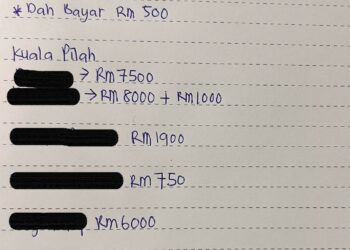 * Dah Bayar Rm 500
Kuala Pilah
→ Rm 7500
→ Rm 8000 + Rm 1000
Rm 1900
Rm 750
Rm 6000